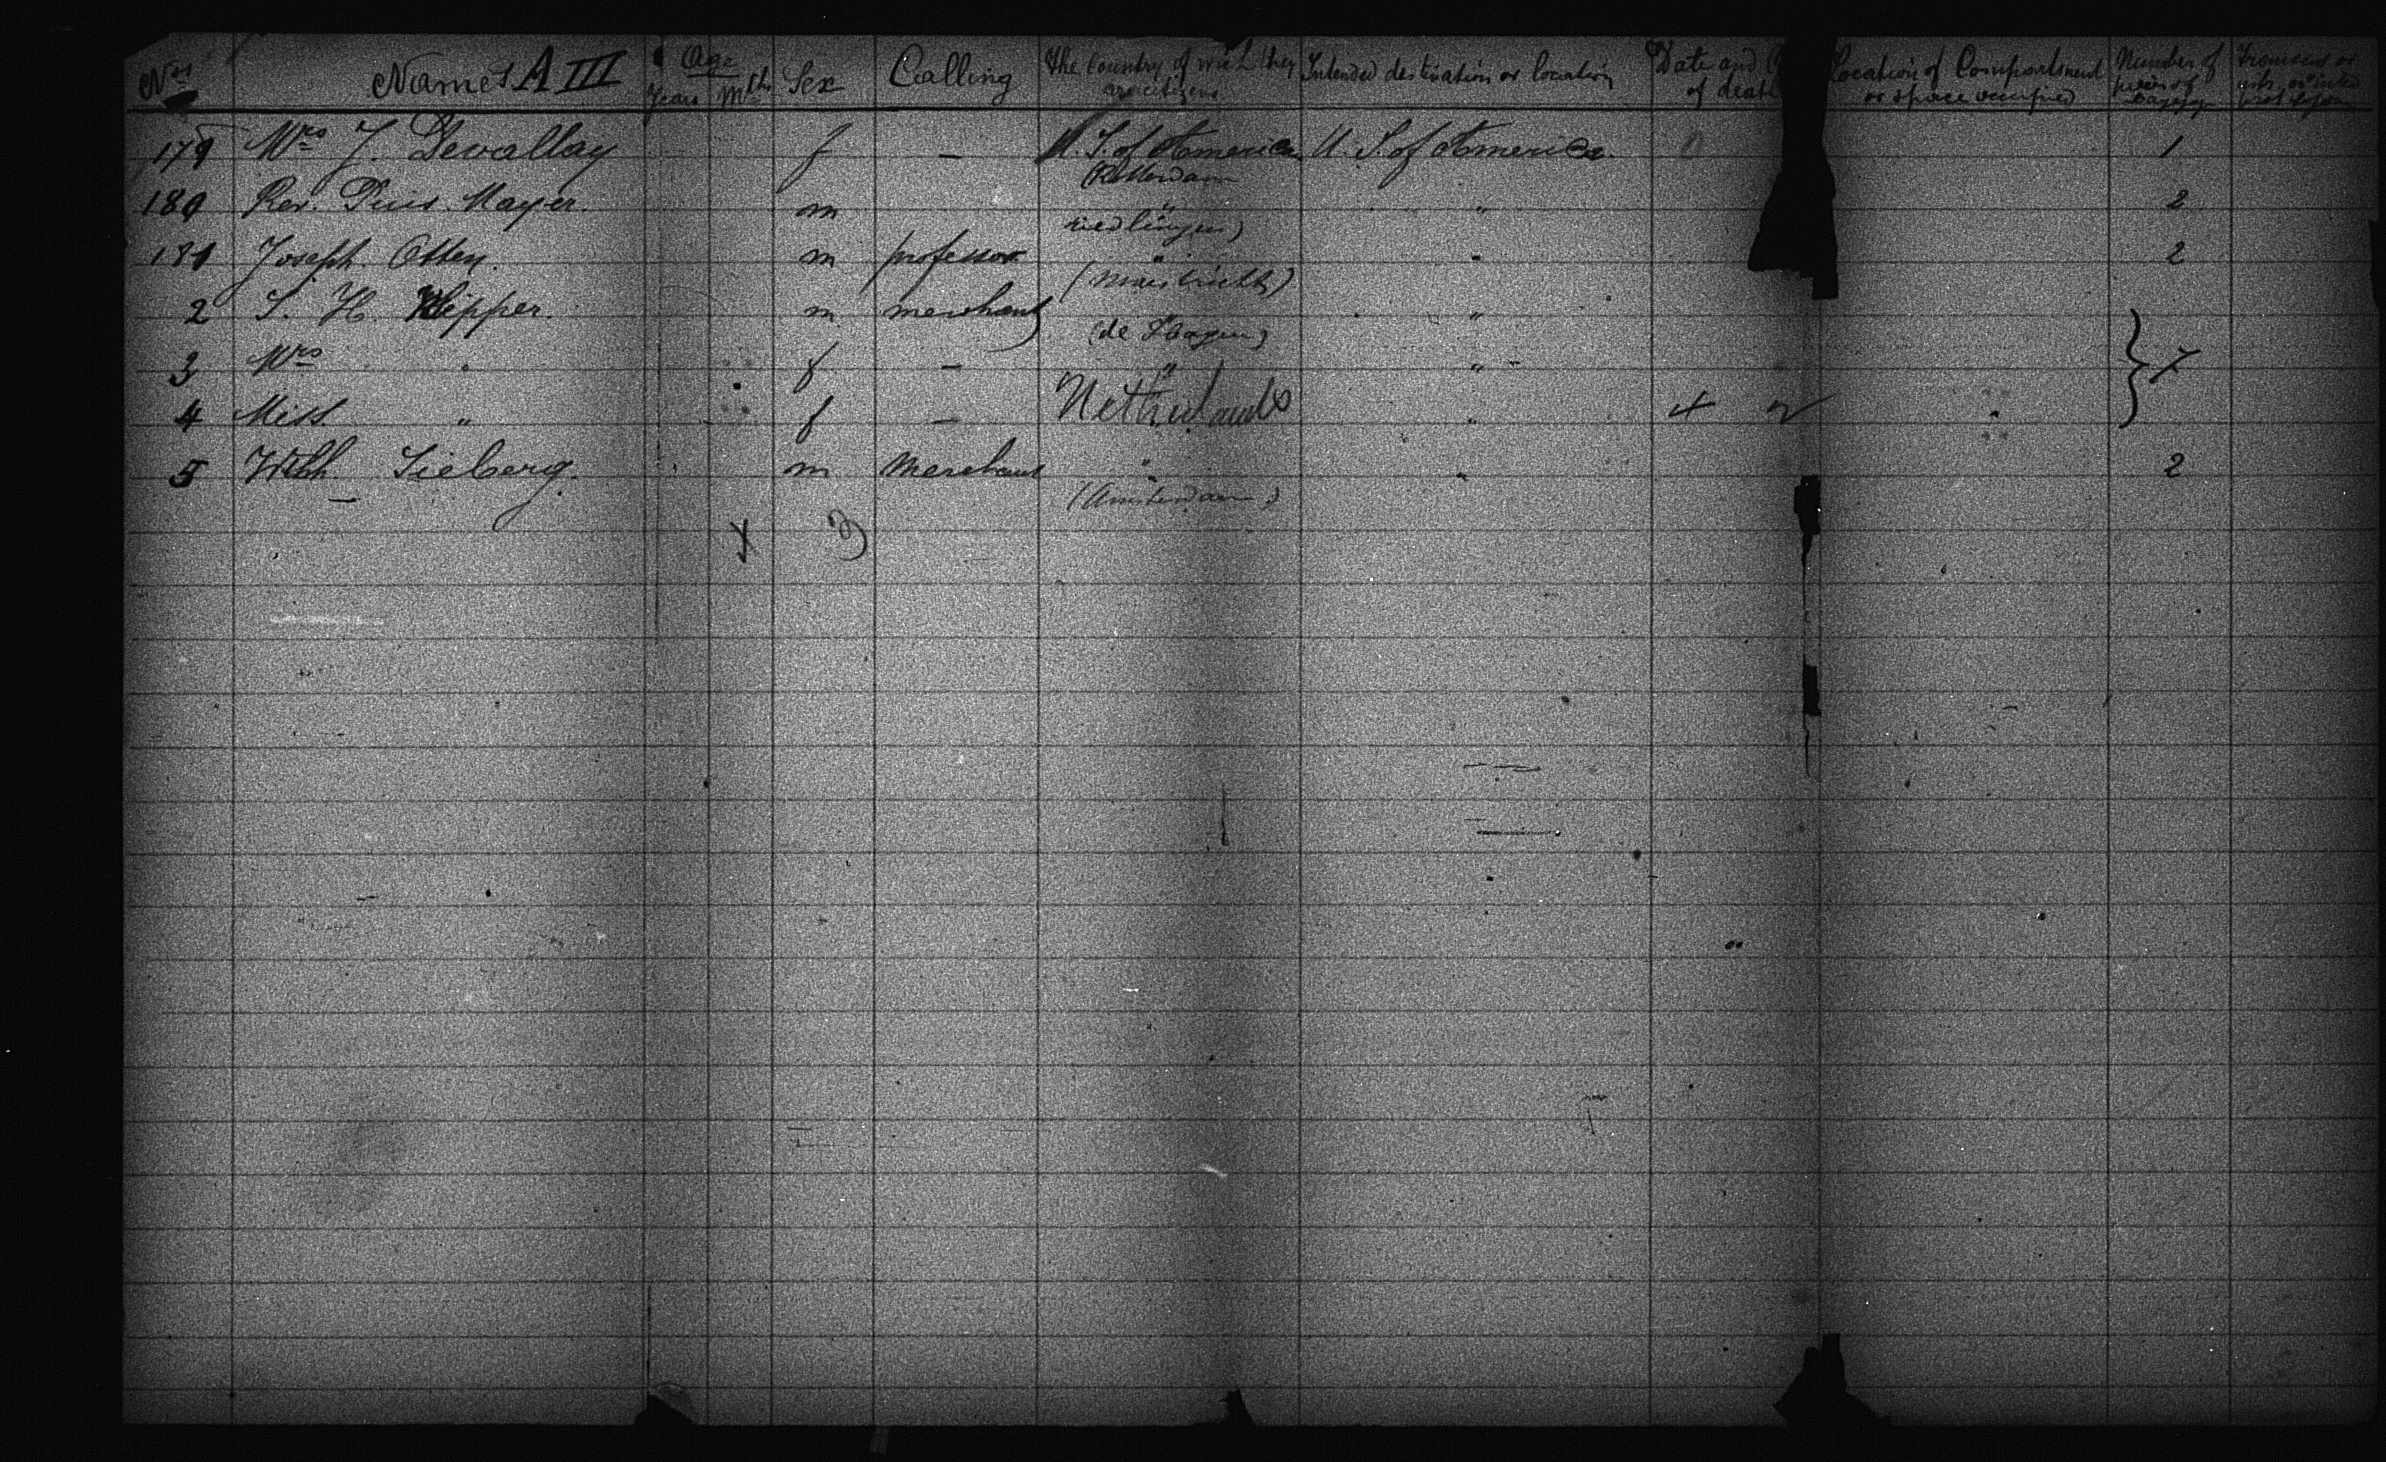 Nos Names A III Age Years Mths Sex Calling The Country of wich they are citizens Intended destination or location Date and of death Location of Compartment or space occupied Number of pieces of bagage
179 Mrs J. Devallay f — U. S. of America U. S. of America. 1
(Rotterdam
180 Rev. Pius Mayer. m " " 2
riedlingen)
181 Joseph Otten. m professor " " 2
(Maestricht)
2 S. H. Kipper. m merchant " "
(de Haagen)
3 Mrs " f — " " } 7
4 Miss. " f — Netherlands "
5 Wilh Sieberg. m merchant " " 2
(Amsterdam)